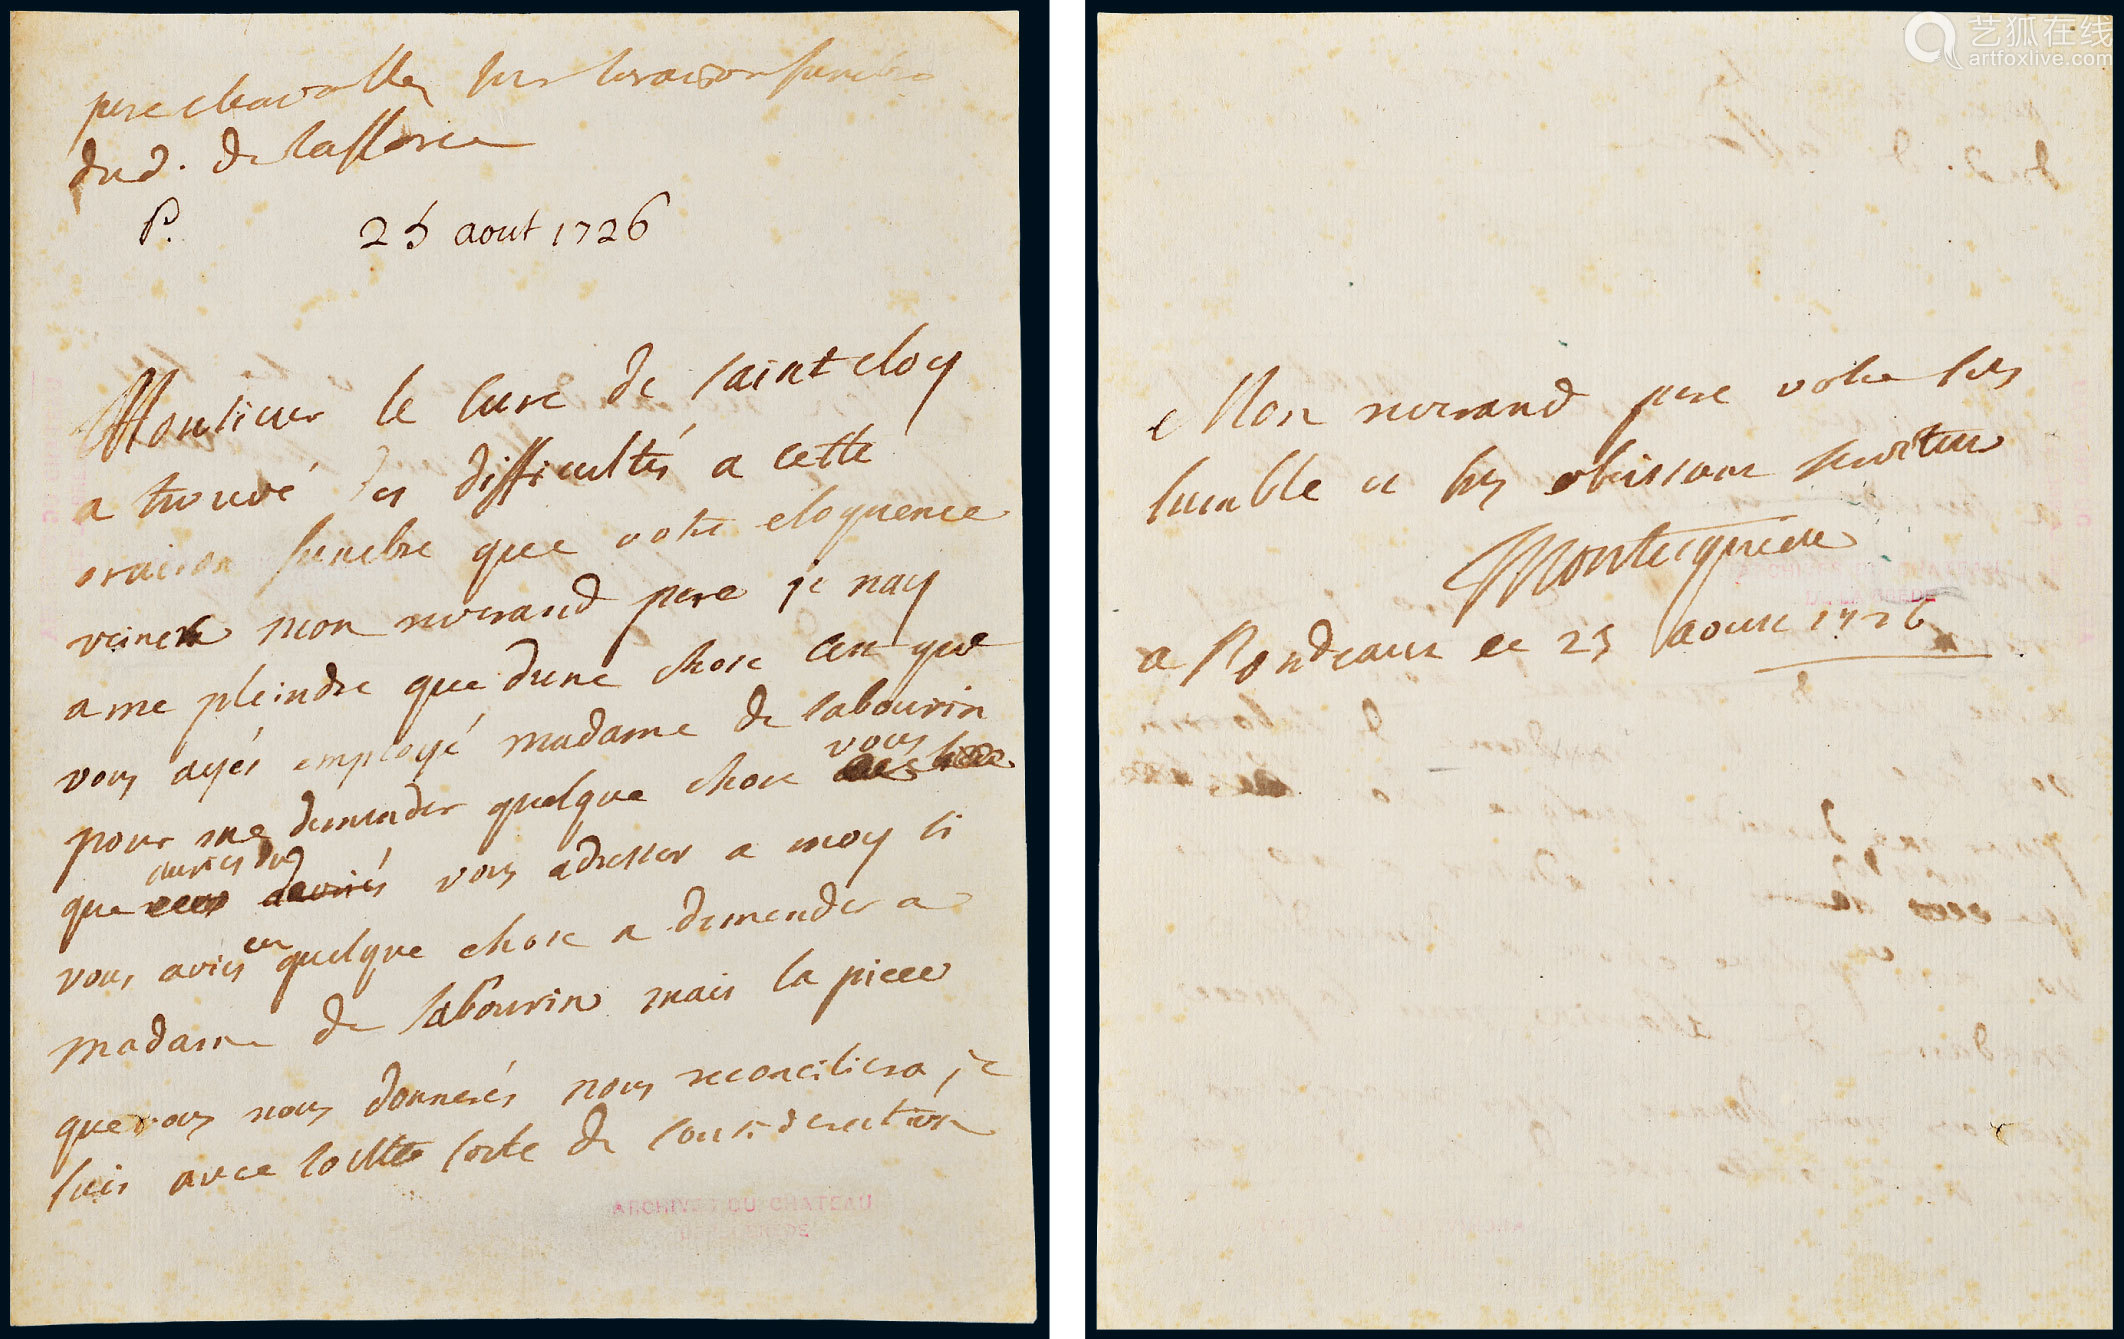 pere chevallier sur loraison funebre
du d. de la force
P. 25 aout 1726
Monsieur le curé de saint eloy
a trouvé des difficultés a cette
oraison funebre que votre eloquence
veincra mon reverand pere je nay
a me pleindre que dune chose cest que
vous ayés employé madame de sabourin
pour me demender quelque chose vous
que auriés du vous adresser a moy si
vous aviés eu quelque chose a demender a
madame de sabourin mais la piece
que vous nous donnerés nous reconciliera, je
suis avec toutte sorte de consideration
ARCHIVES DU CHATEAU
DE LA BREDE
Mon reverand pere votre tres
humble et tres obeissant serviteur
Montesquieu
ARCHIVES DU CHATEAU
DE LA BREDE
a Bordeaux ce 25 aoust 1726
艺狐在线
artfoxlive.com